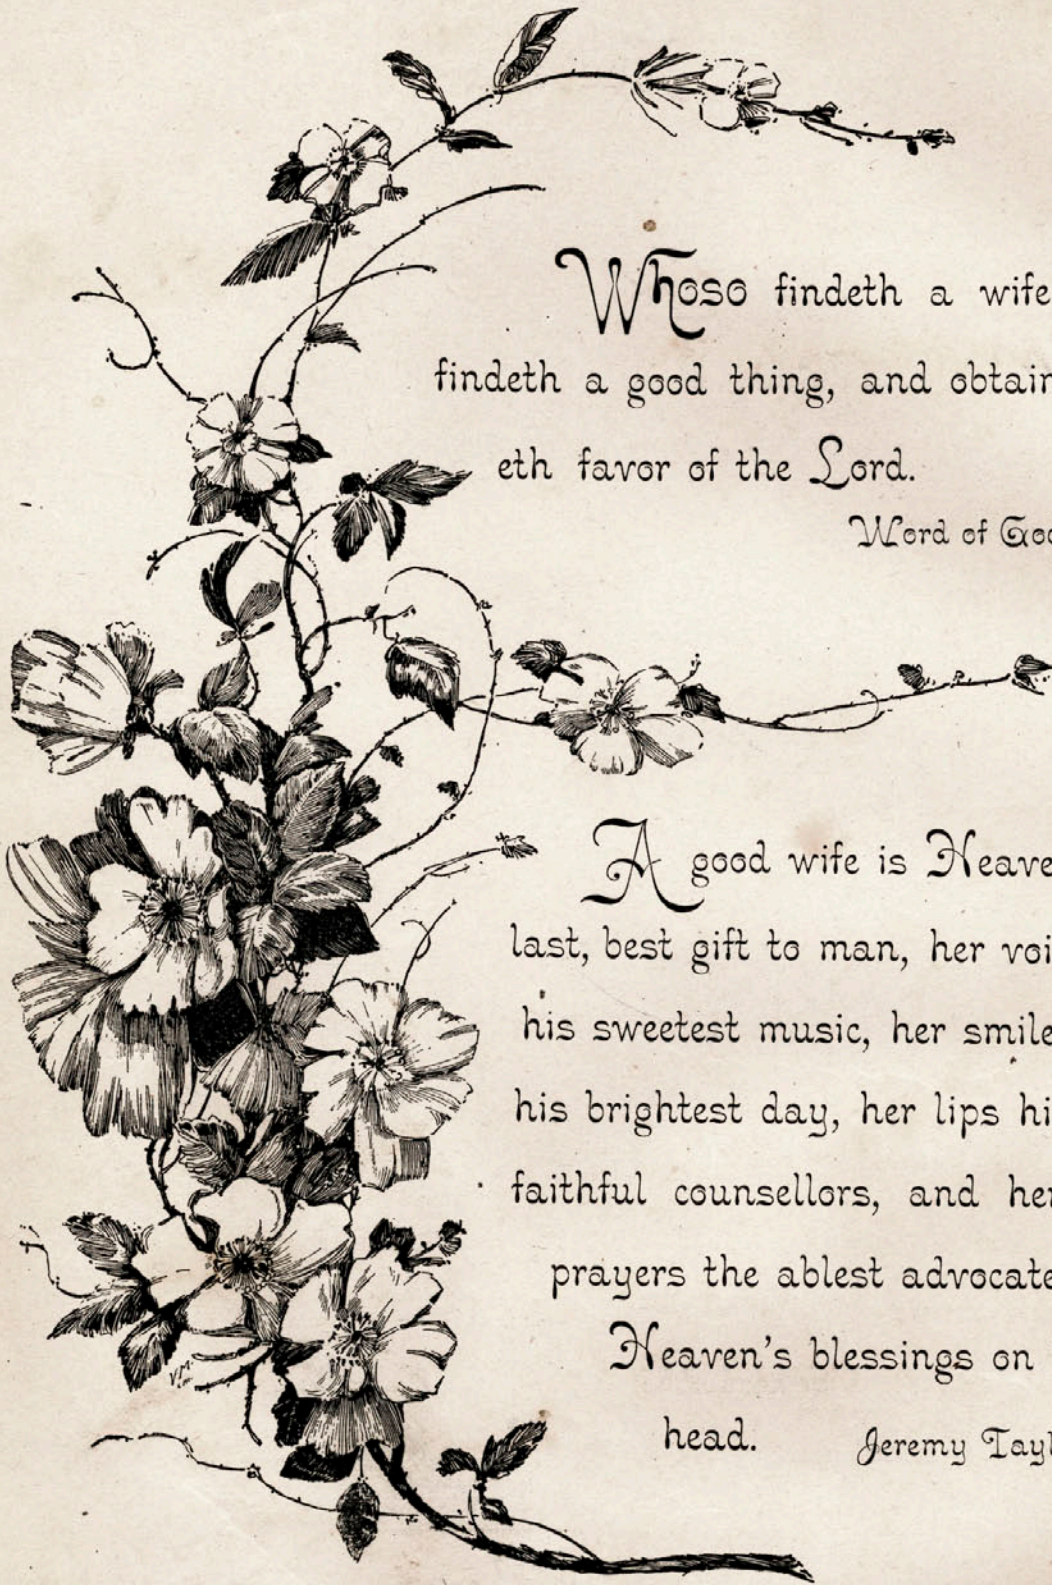 Whoso findeth a wife
findeth a good thing, and obtain
eth favor of the Lord.
Word of
A good wife is
last, best gift to man, her
his sweetest music, her smile
his brightest day, her lips
faithful counsellors, and her
prayers the ablest advocate
Heaven's blessings on
head. Jeremy